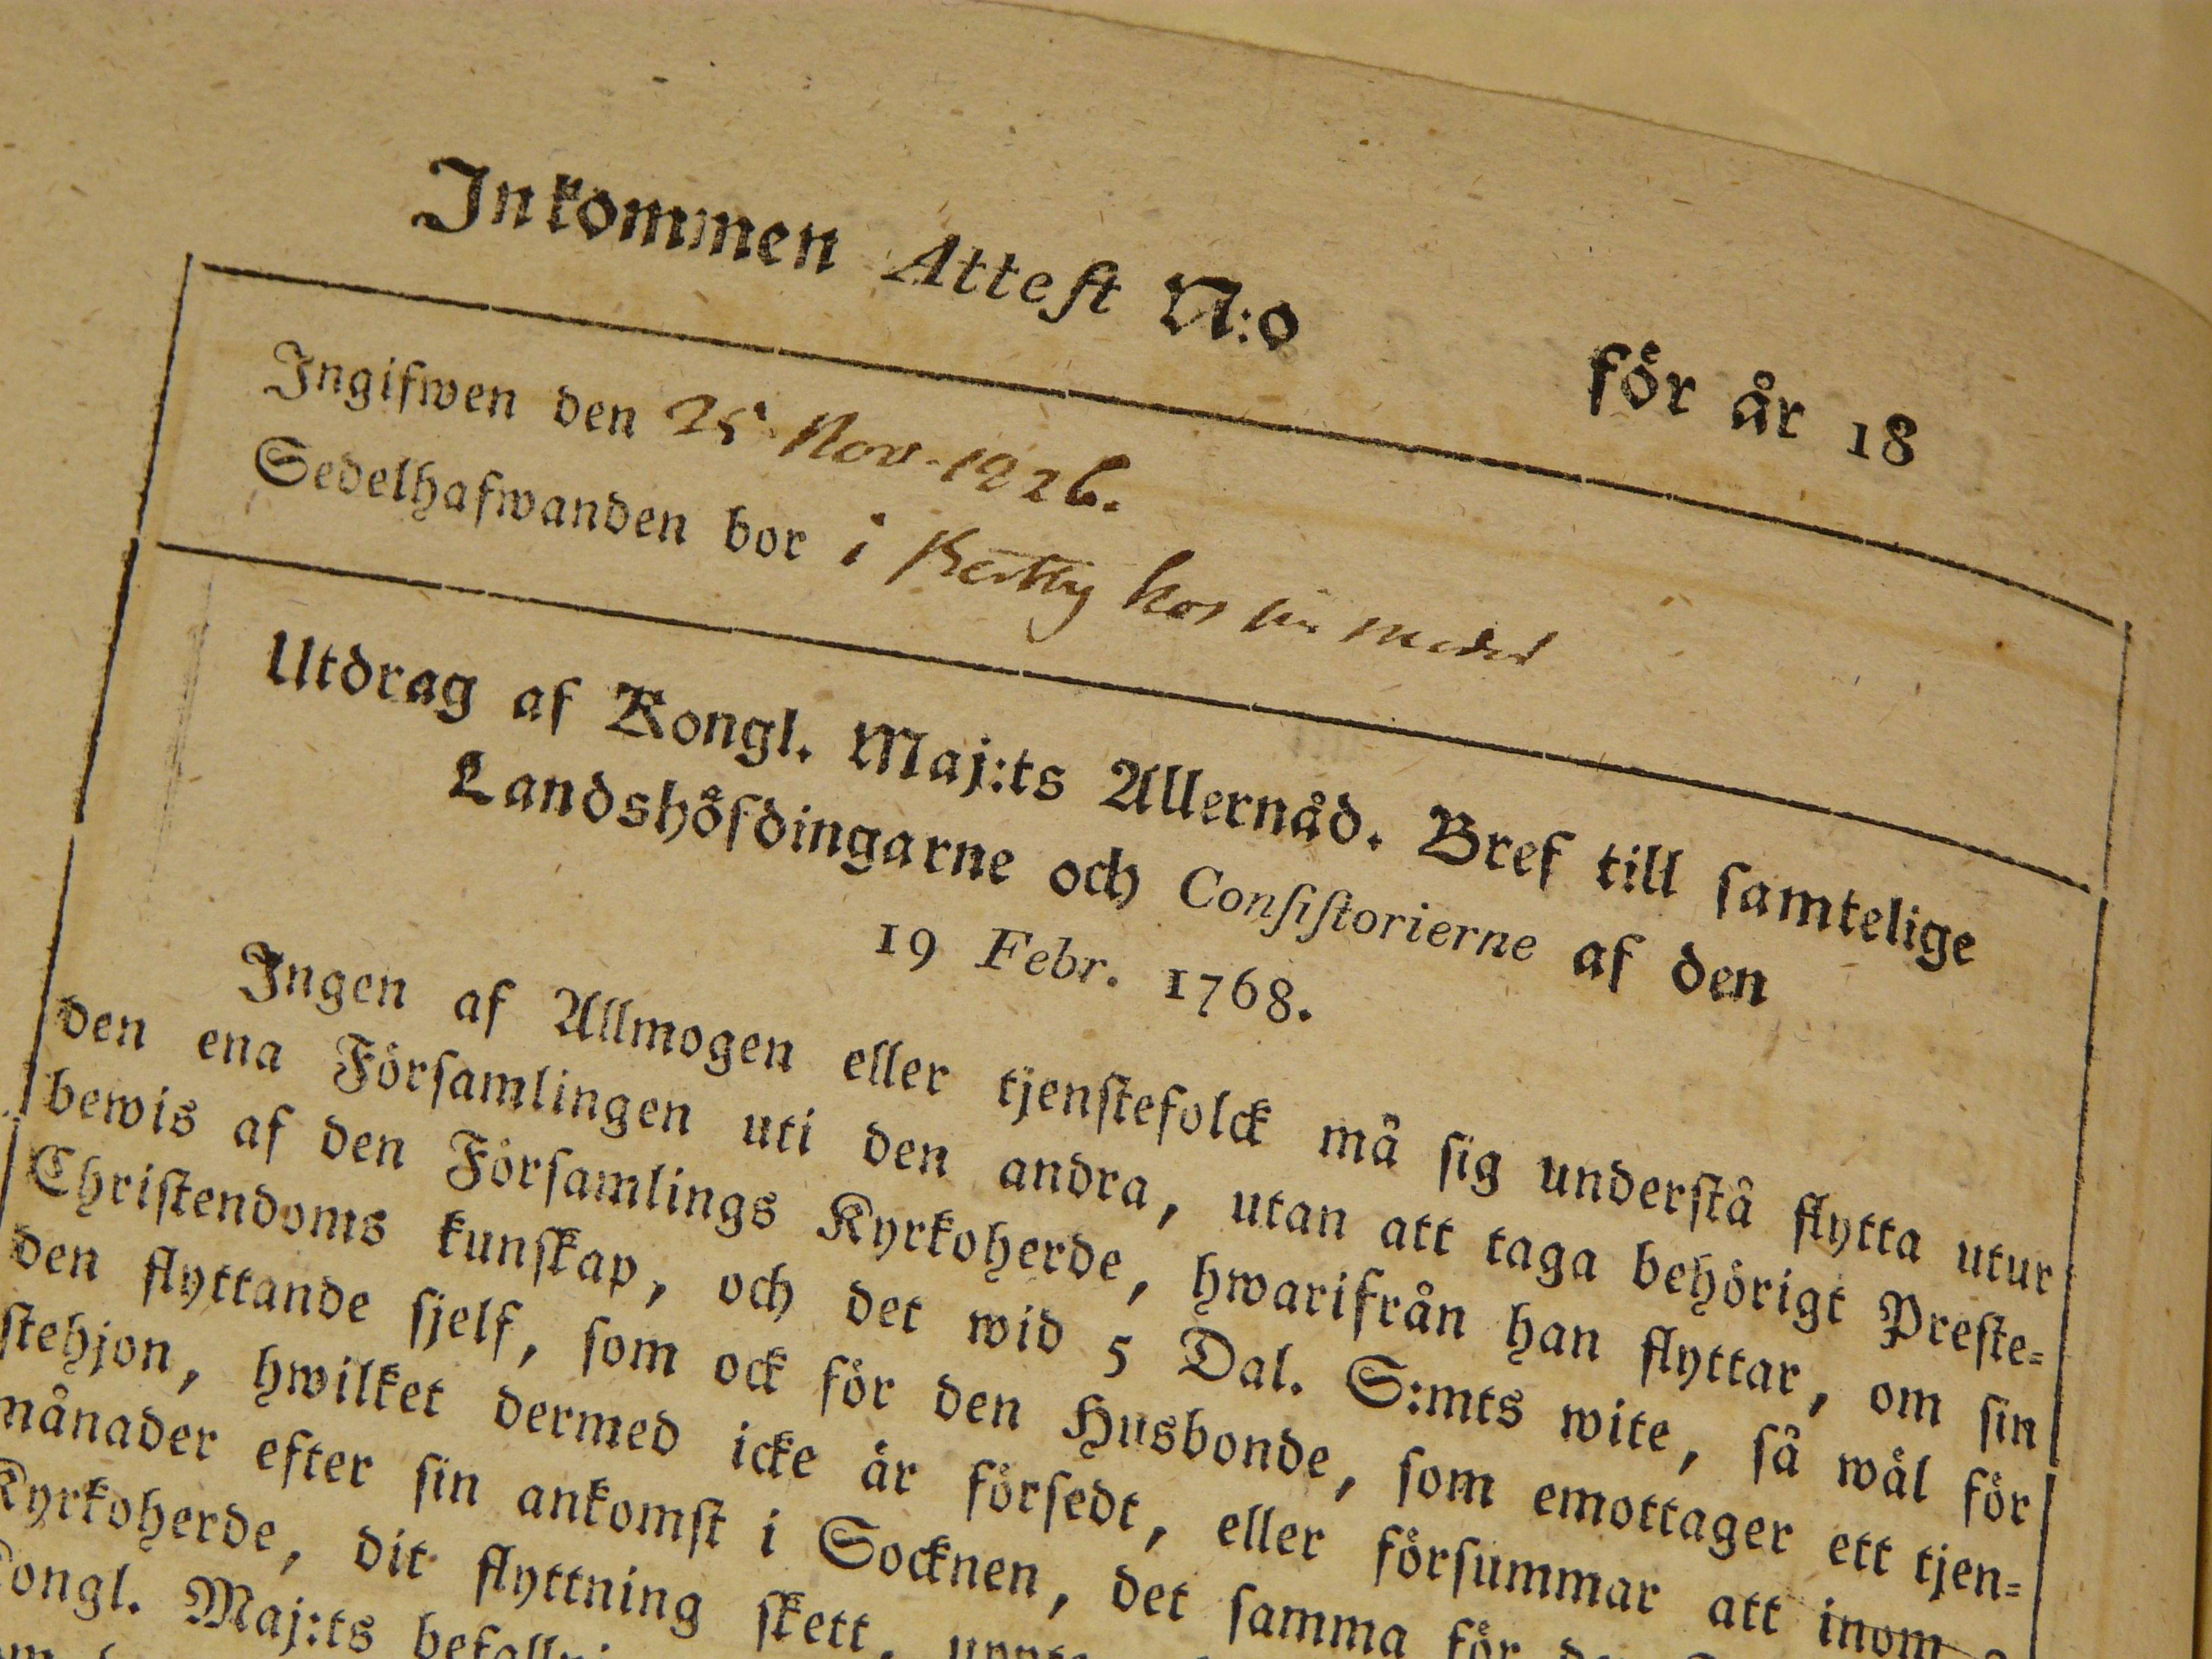 Inkommen Atteſt N:o för år 18
Ingifwen den 25 Nov. 1826.
Sedelhafwanden bor i hos sin moder
Utdrag af Kongl. Maj:ts Allernåd. Bref till ſamtelige
Landshöfdingarne och Conſiſtorierne af den
19 Febr. 1768.
Ingen af Allmogen eller tjenſtefolck må ſig underſtå flytta utur
den ena Förſamlingen uti den andra, utan att taga behörigt Preſte-
bewis af den Förſamlings Kyrkoherde, hwarifrån han flyttar, om ſin
Chriſtendoms kunſkap, och det wid 5 Dal. S:mts wite, ſå wäl för
den flyttande ſjelf, ſom ock för den Husbonde, ſom emottager ett tjen-
ſtehjon, hwilket dermed icke är förſedt, eller förſummar att inom
månader efter ſin ankomſt i Socknen, det ſamma för
Kyrkoherde, dit flyttning ſkett,
Kongl. Maj:ts